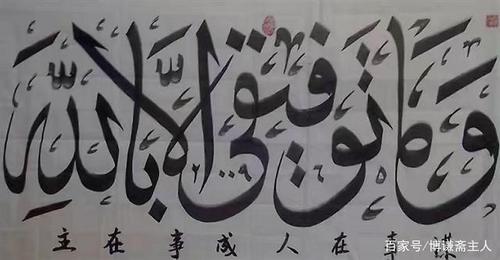 وما توفيقي إلا بالله
謀事在人成事在主
百家号/博谦斋主人